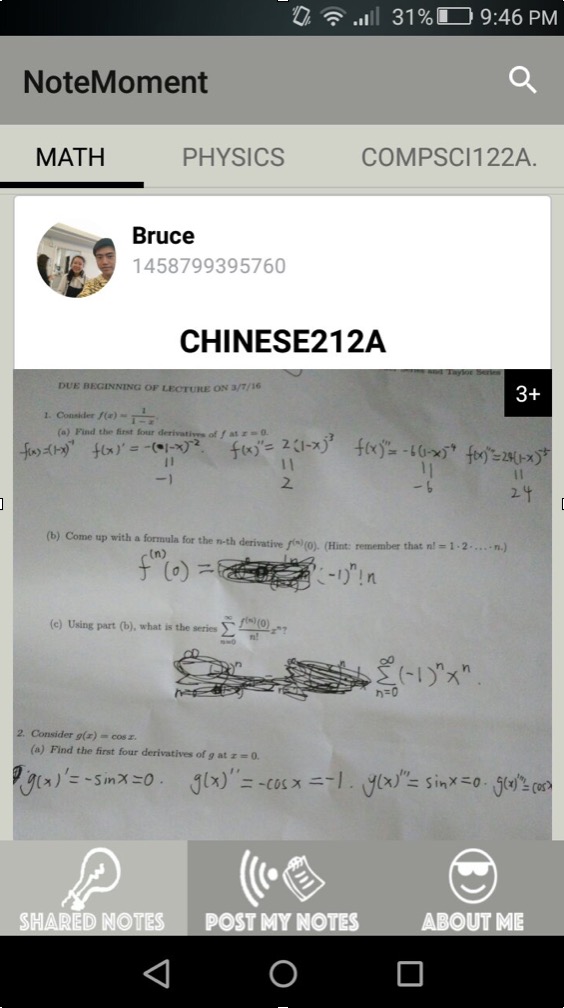 31% 9:46 PM
NoteMoment
MATH PHYSICS COMPSCI122A.
Bruce
1458799395760
CHINESE212A
and Taylor Series
3+
DUE BEGINNING OF LECTURE ON 3/7/16
1. Consider f(x) = 1/(1−x).
(a) Find the first four derivatives of f at x = 0.
f(x)=(1-x)⁻¹ f(x)' = -(1-x)⁻². f(x)'' = 2(1-x)⁻³ f(x)''' = -6(1-x)⁻⁴ f(x)'''' = 24(1-x)⁻⁵
|| || || ||
-1 2 -6 24
(b) Come up with a formula for the n-th derivative f⁽ⁿ⁾(0). (Hint: remember that n! = 1 · 2 · … · n.)
f⁽ⁿ⁾(0) = (-1)ⁿ!n
(c) Using part (b), what is the series ∑_{n=0}^{∞} f⁽ⁿ⁾(0)/n! xⁿ?
∑_{n=0}^{∞} (-1)ⁿ xⁿ.
2. Consider g(x) = cos x.
(a) Find the first four derivatives of g at x = 0.
g(x)' = -sinx=0. g(x)'' = -cosx = -1. g(x)''' = sinx=0. g(x)'''' = cosx
SHARED NOTES POST MY NOTES ABOUT ME